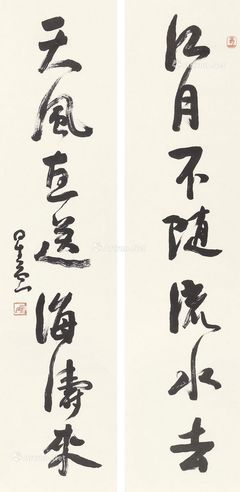 江月不随流水去
天風直送海濤來
星云